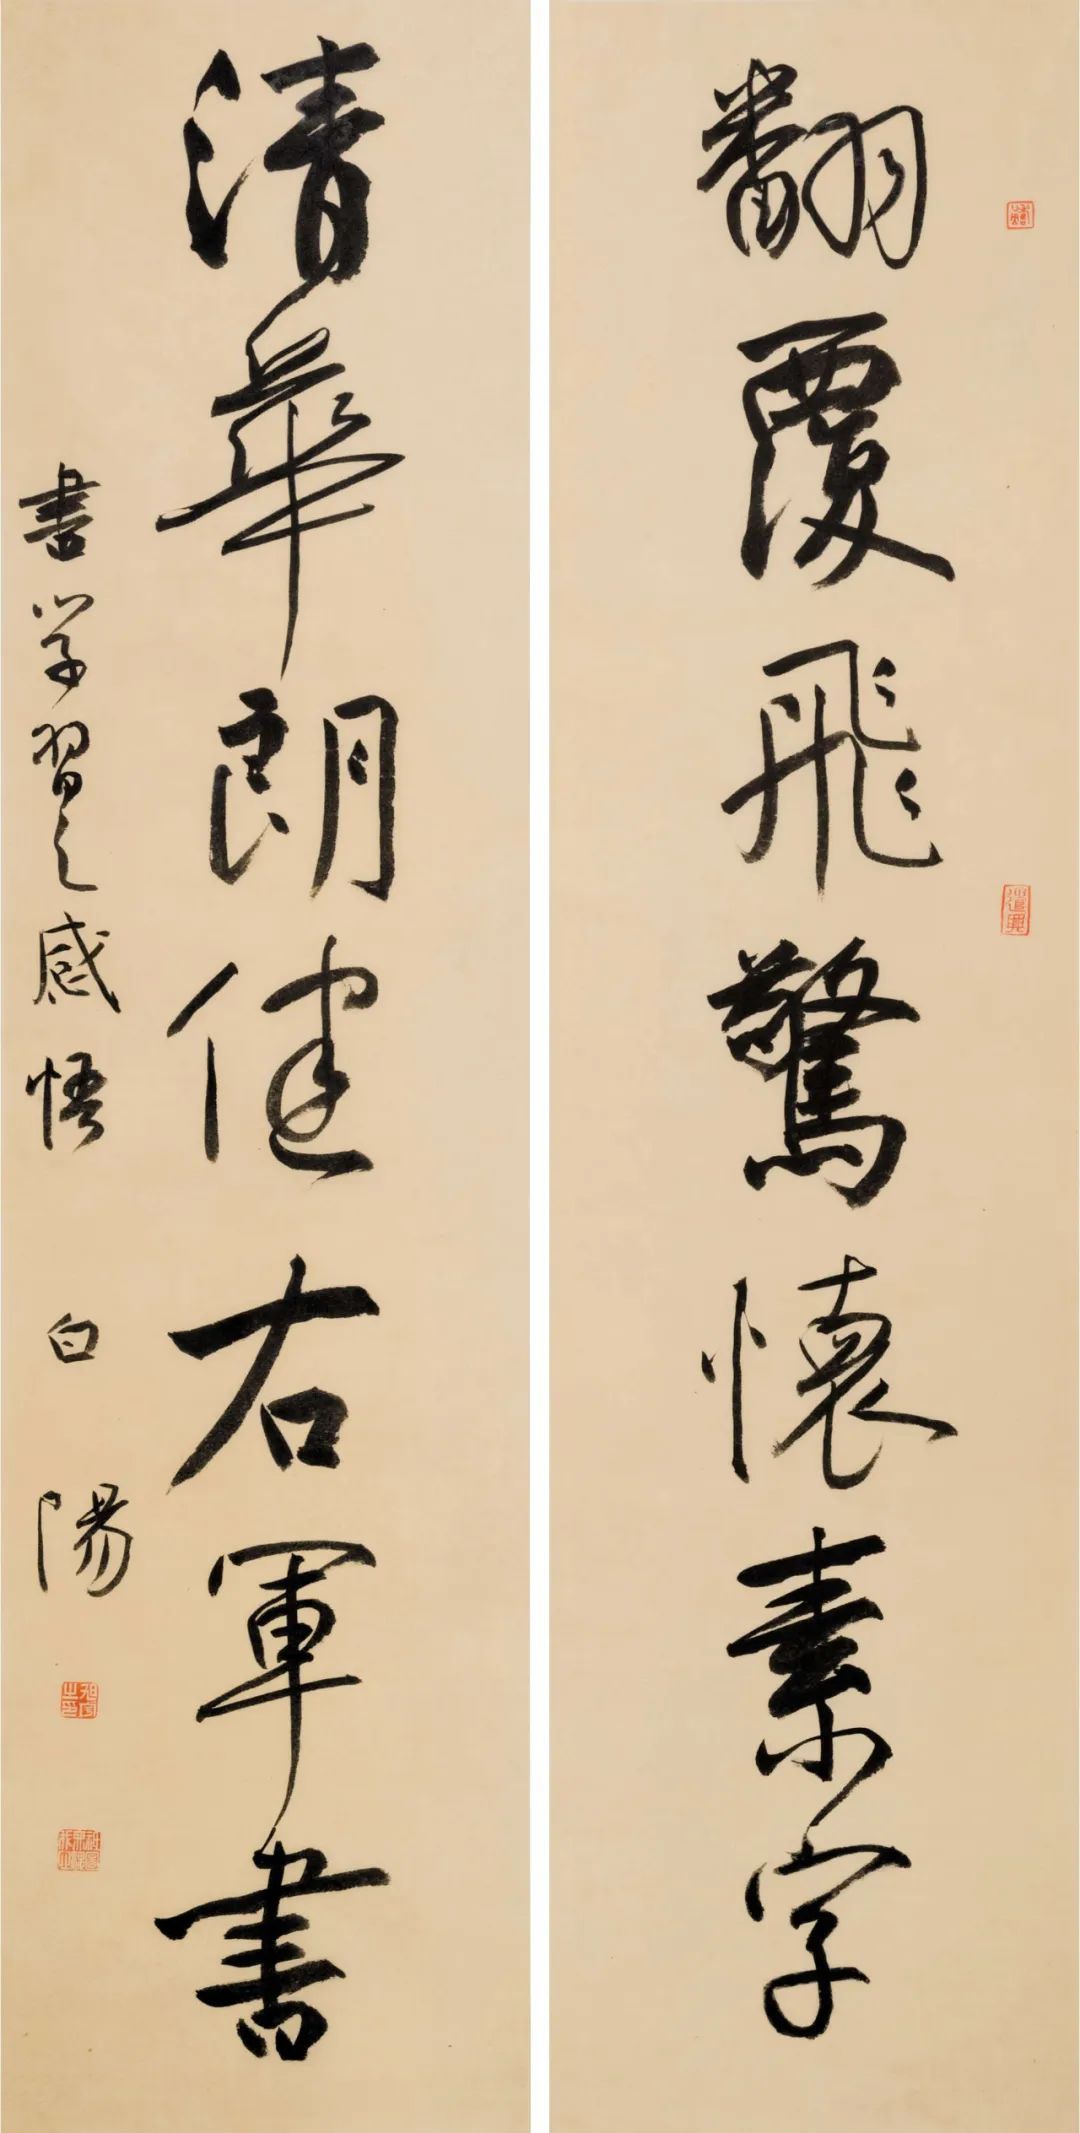 翻覆飛驚懷素字
清華朗健右軍書
書學習之感悟
白陽